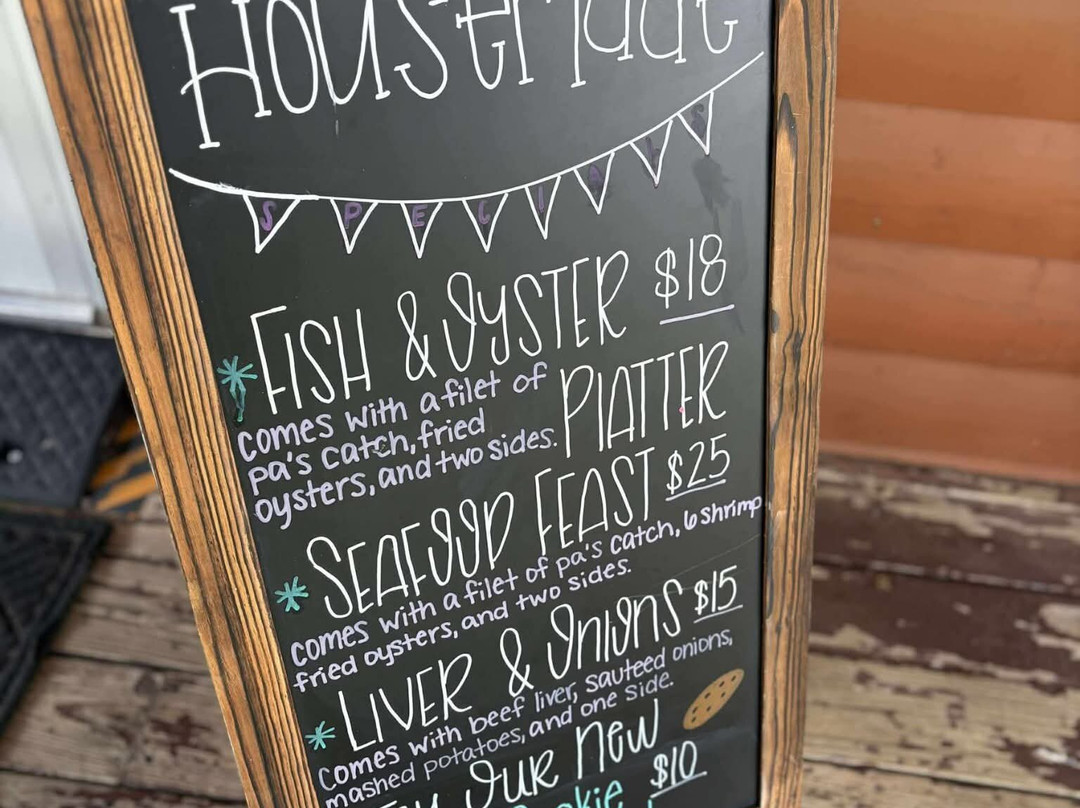 Housemade
SPECIALS
* FISH & OYSTER $18
PLATTER
comes with a filet of
pa's catch, fried
oysters, and two sides.
* SEAFOOD FEAST $25
comes with a filet of pa's catch, 6 shrimp,
fried oysters, and two sides.
* LIVER & ONIONS $15
comes with beef liver, sauteed onions,
mashed potatoes, and one side.
OUR NEW
$10